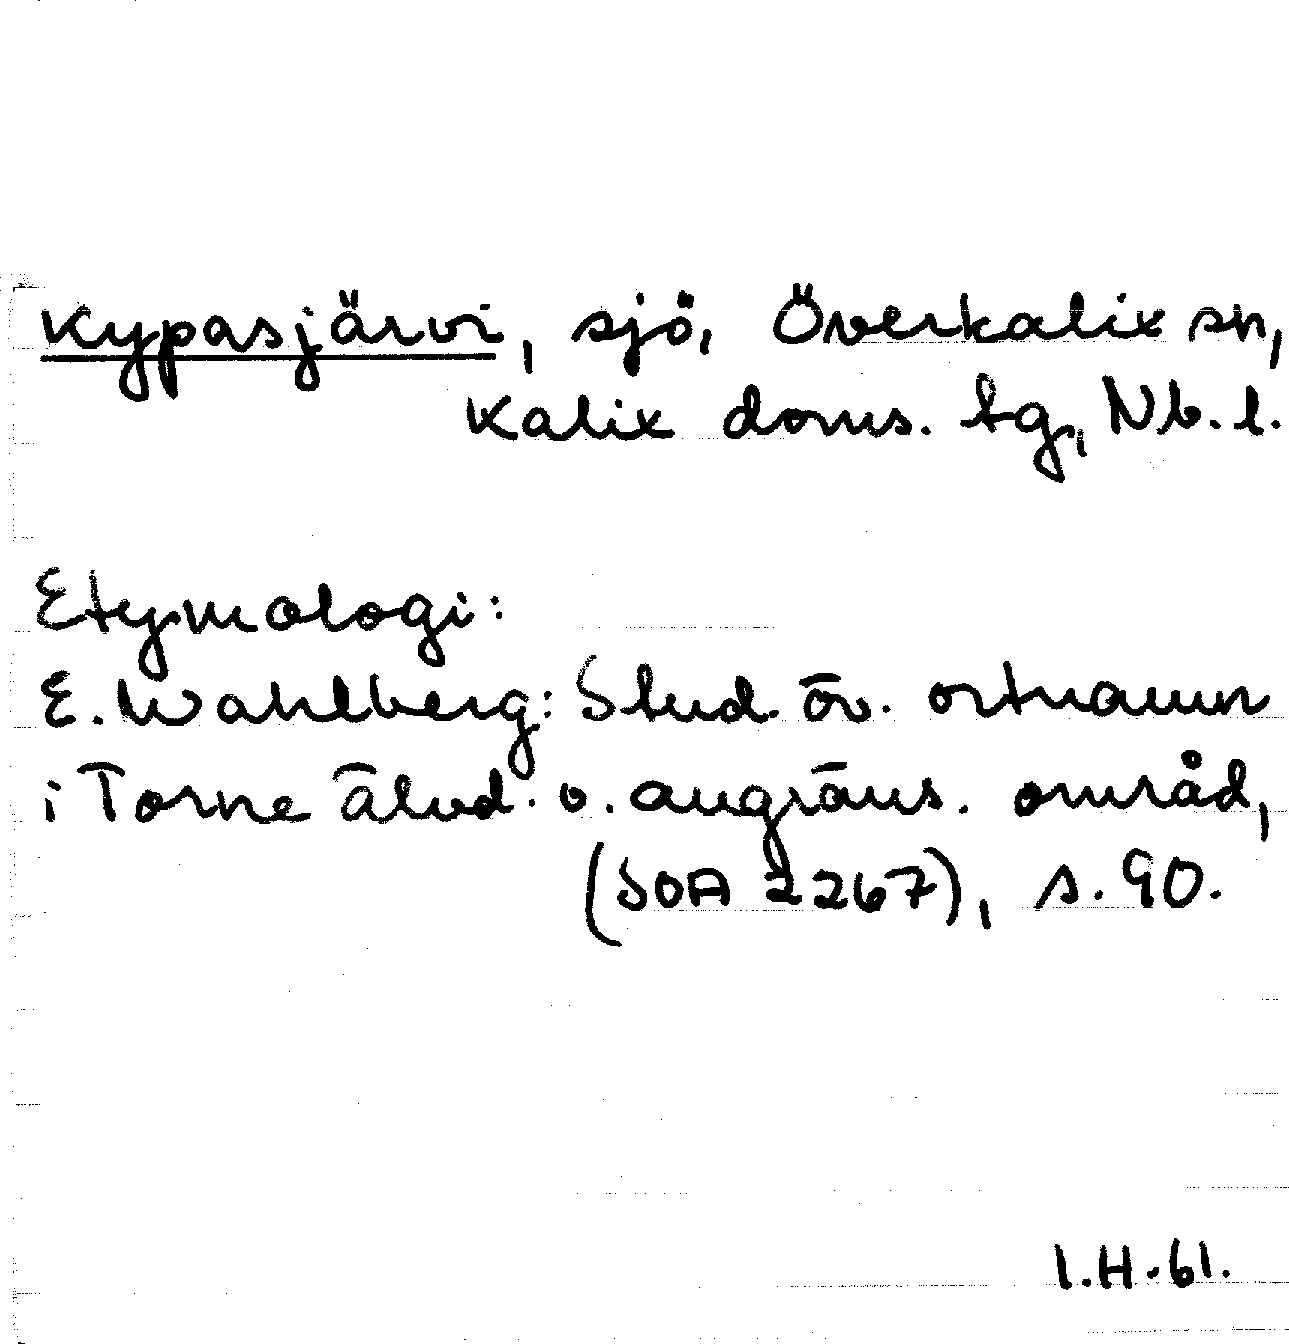 Kypasjärvi, sjö, Överkalix sn,
Kalix doms. tg, Nb. l.
Etymologi:
E. Wahlberg: Stud. öv. ortnamn
i Torne älvd. o. angräns. områd,
(SOA 2267), s. 90.
I.H.61.